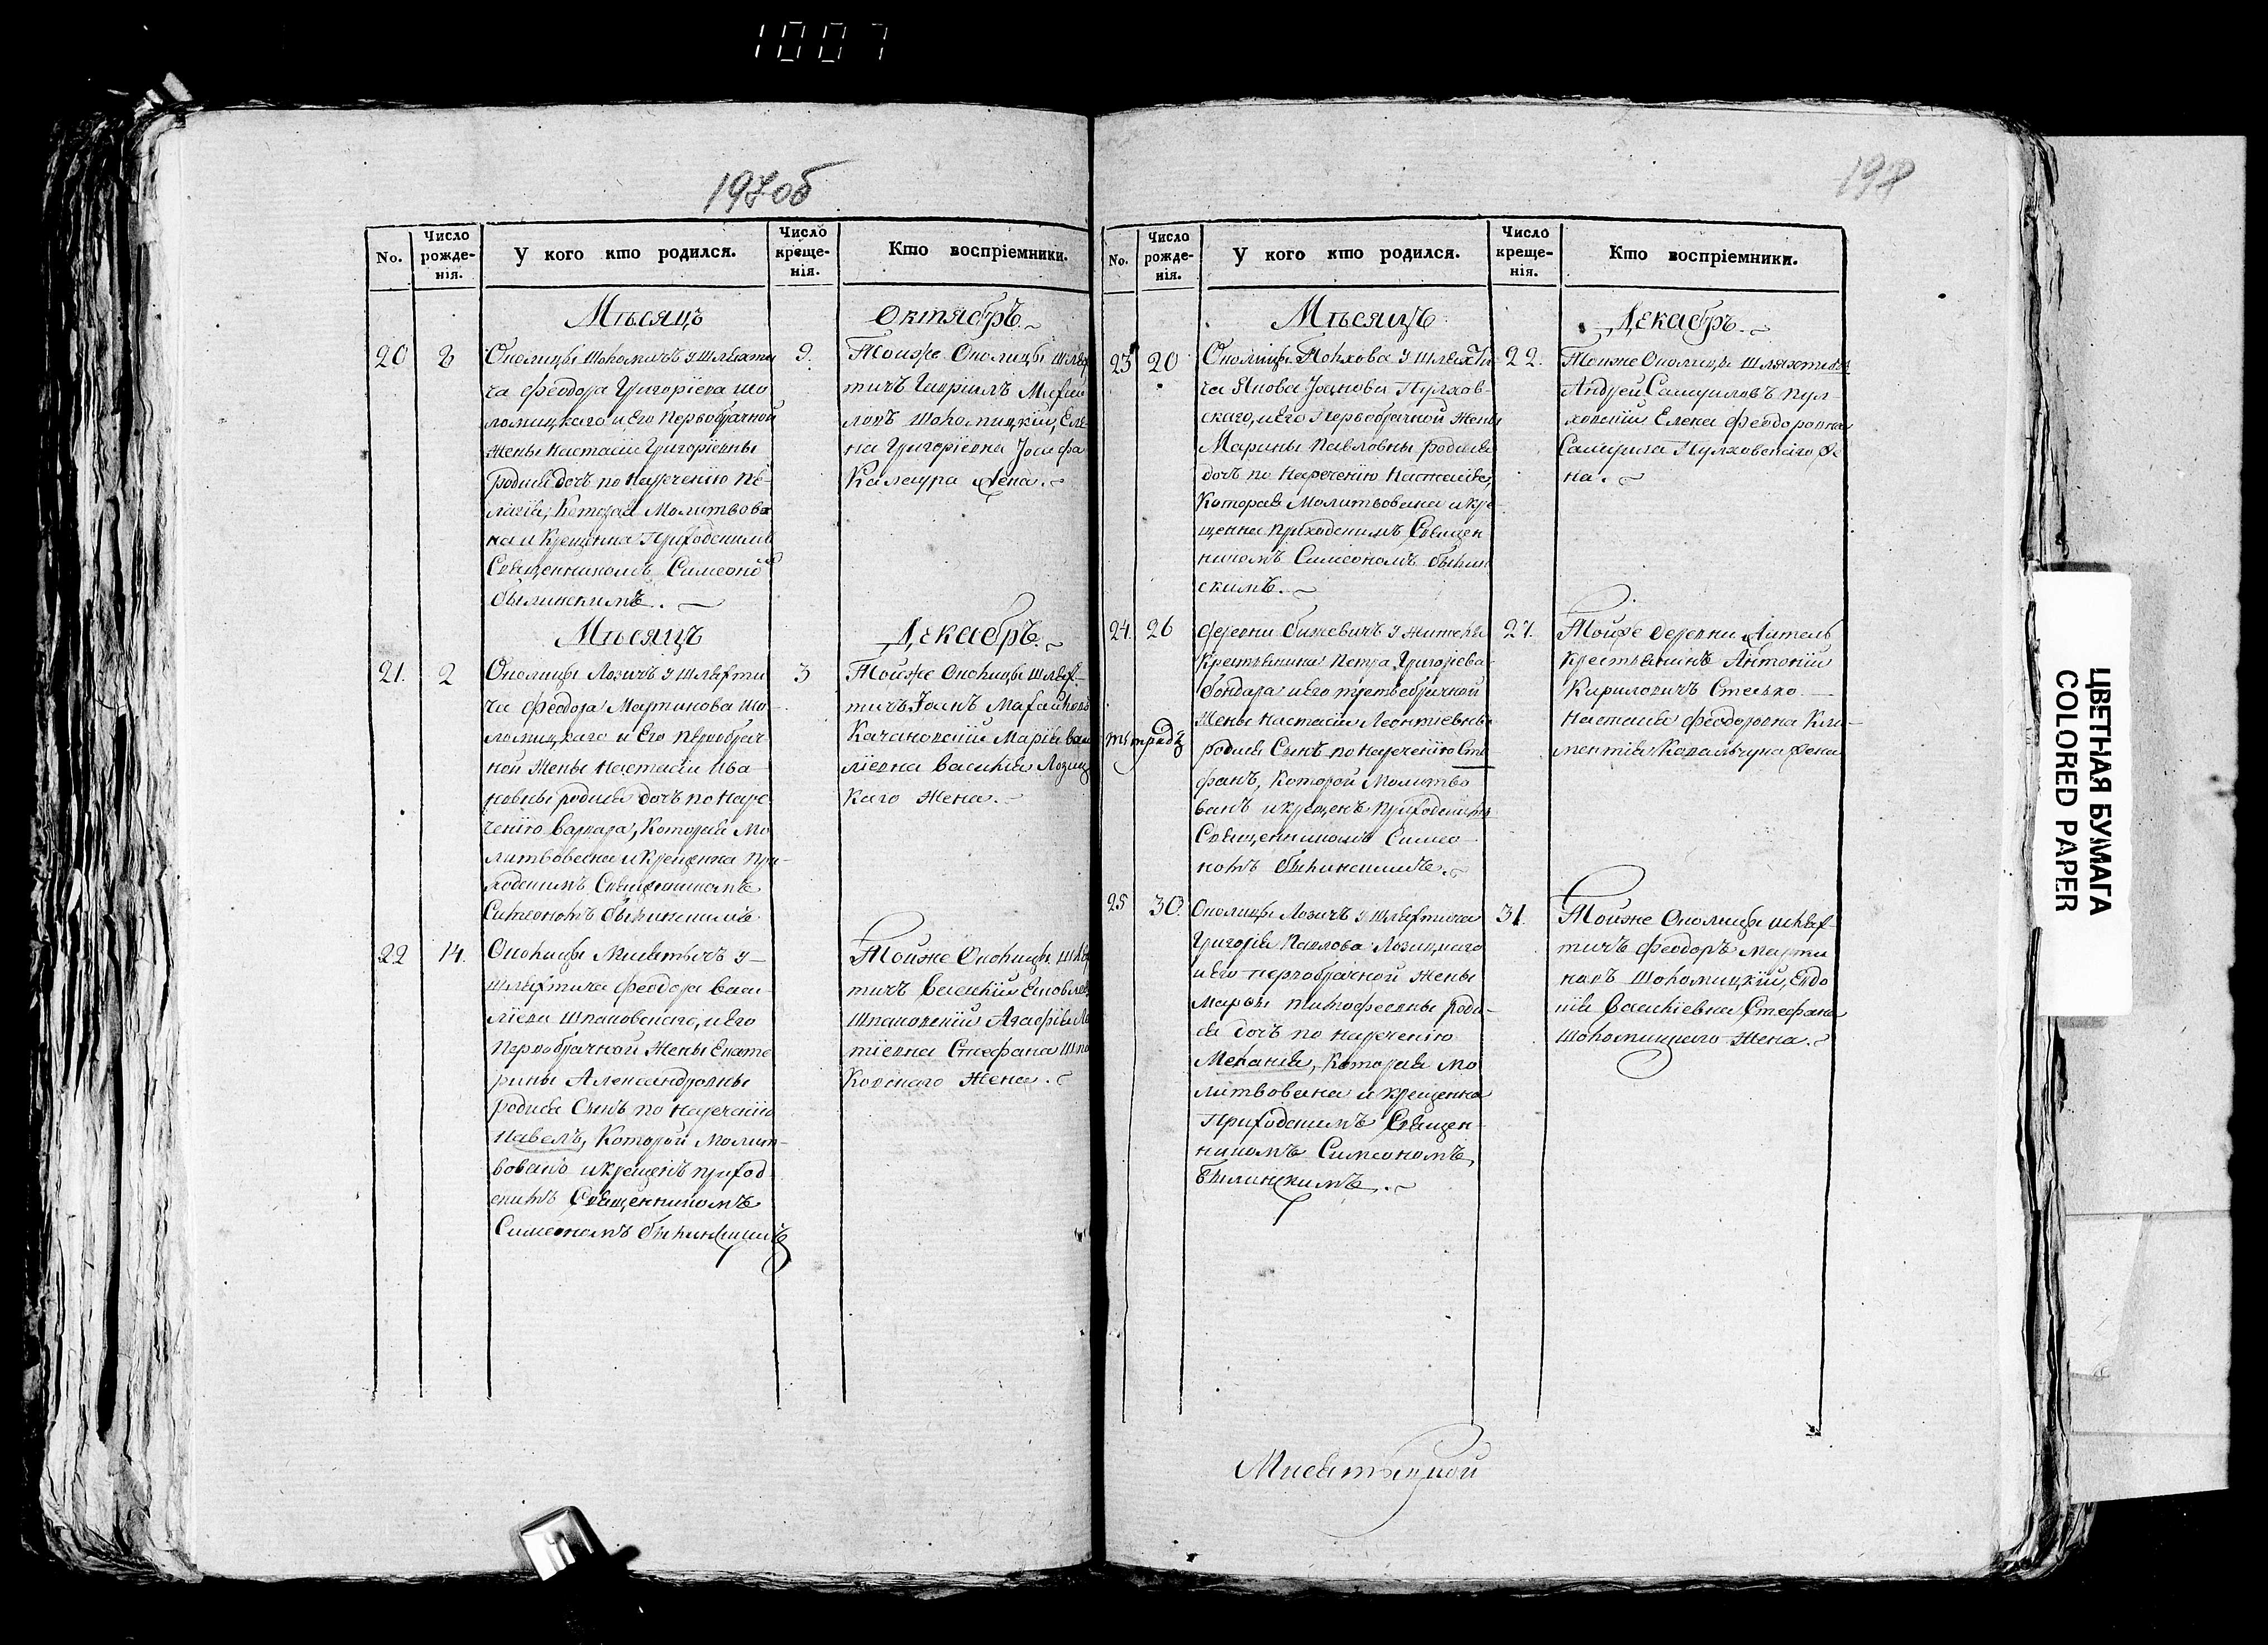 1007
197об
No.
Число рожде-нія.
У кого кто родился.
Число креще-нія.
Кто воспріемники.
Мѣсяцъ Октябрь
20 8 9.
Околицы Шоломичъ у шляхти
ча Феодора Григоріева Шо
ломицкаго и Его Первобрачной
Жены Настасіи Григоріевны
родися дочь по Наречению Пе-
лагія, Которая Молитвова
на и Крещенна Приходскимъ
Священникомъ Симеоно
Былинскимъ.
Тойже Околицы Шлях
тичъ Гавріилъ Михаи
ловъ Шоломицкій, Еле
на Григоріевна Іосифа
Жена.
Мѣсяцъ Декабрь.
21. 2 3
Околицы Лозичъ у Шляхти
ча Феодора Мартинова Шо-
ломицкаго и Его Первобрач
ной Жены Настасіи Ива-
новны родися дочь по Наре-
ченію Варвара, Которая Мо
литвована и Крещенна При-
ходскимъ Священникомъ
Симеономъ Былинскимъ
Тойже Околицы Шлях-
тичъ Іоанъ Михайловъ
Качановскій Марія Васи
ліевна Василія Лозиц
Каго Жена.
22 14.
Околицы Мнсятычъ у
шляхтича Феодора Васи-
ліева Шпаковскаго, и Его
Первобрачной Жены Екате
рины Александровны
родися Сынъ по Наречению
Павелъ, Которой Молит-
вованъ и крещенъ приход
скимъ Священникомъ
Симеономъ Былинскимъ
Тойже Околицы Шлях
тичъ Василій
Шпаковскій Агафія
Стефана Шпа
Ковскаго Жена.
198
No.
Число рожде-нія.
У кого кто родился.
Число креще-нія.
Кто воспріемники.
Мѣсяцъ Декабрь.
23 20 22.
Околицы Полхова у шляхти
ча Якова Іоанова Пулхов-
скаго, и Его Первобрачной Жены
Марины Павловны родися
дочь по Наречению Настасія,
Которая Молитвована и кре-
щенна Приходскимъ Священ
никомъ Симеономъ Былин
скимъ.
Тойже Околицы Шляхтичъ
Андрей Самуиловъ Пул-
ховскій Елена Феодоровна
Самуила Пулховскаго Же
на.
24. 26 27.
деревни Бижевичъ у Жителя
Крестьянина Петра Григоріева
Бондара и его третьебрачной
Жены Настасіи Леонтіевны
родися Сынъ по Наречению Сте
фанъ, Которой Молитво
ванъ и крещенъ Приходскимъ
Священникомъ Симео
номъ Былинскимъ.
Тойже деревни Жытель
Крестьянинъ Антоній
Кириловичъ Стецко
Настасія Феодоровна Кли-
ментія Ковальчука Жена
25 30. 31.
Околицы Лозичъ у Шляхтича
Григорія Павлова Лозицкаго
и Его первобрачной Жены
Марьи Тимофеевны роди-
ся дочь по Наречению
Меланія, Которая Мо
литвована и крещенна
Приходскимъ Священ-
никомъ Симеономъ
Былинскимъ.
Тойже Околицы Шлях-
тичъ Феодоръ Марти
новъ Шоломицкій, Евдо
кія Василіевна Стефана
Шоломицкаго Жена.
ЦВЕТНАЯ БУМАГА
COLORED PAPER